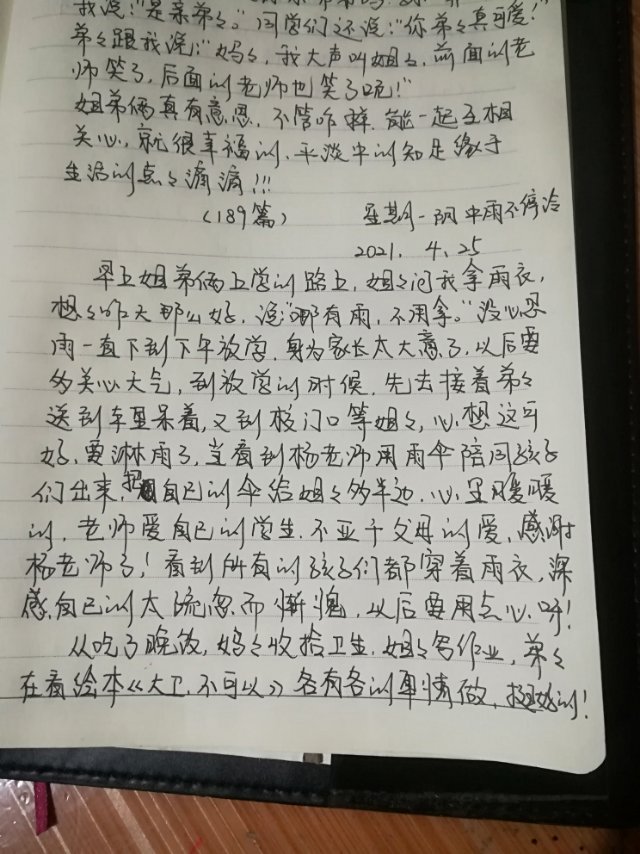 我说："是亲弟々。"同学们还说："你弟々真可爱！"
弟々跟我说："妈々，我大声叫姐々，前面的老
师笑了，后面的老师也笑了呢！"
姐弟俩真有意思，不管咋样，能一起互相
关心，就很幸福的，平淡中的知足缘于
生活的点々滴滴！！！
（189篇） 星期一 阴 中雨不停冷
2021. 4. 25
早上姐弟俩上学的路上，姐々问我拿雨衣，
想々昨天那么好，说："哪有雨，不用拿。"没心思
雨一直下到下午放学，身为家长太大意了，以后要
多关心天气，到放学的时候，先去接着弟々
送到车里呆着，又到校门口等姐々，心想这可
好，要淋雨了，当看到杨老师用雨伞陪同孩子
们出来，把自己的伞给姐々多半边，心里暖暖
的，老师爱自己的学生，不亚于父母的爱，感谢
杨老师了！看到所有的孩子们都穿着雨衣，深
感自己的太疏忽而惭愧，以后要用点心呀！
从吃了晚饭，妈々收拾卫生，姐々写作业，弟々
在看绘本《大卫，不可以》各有各的事情做，挺好的！